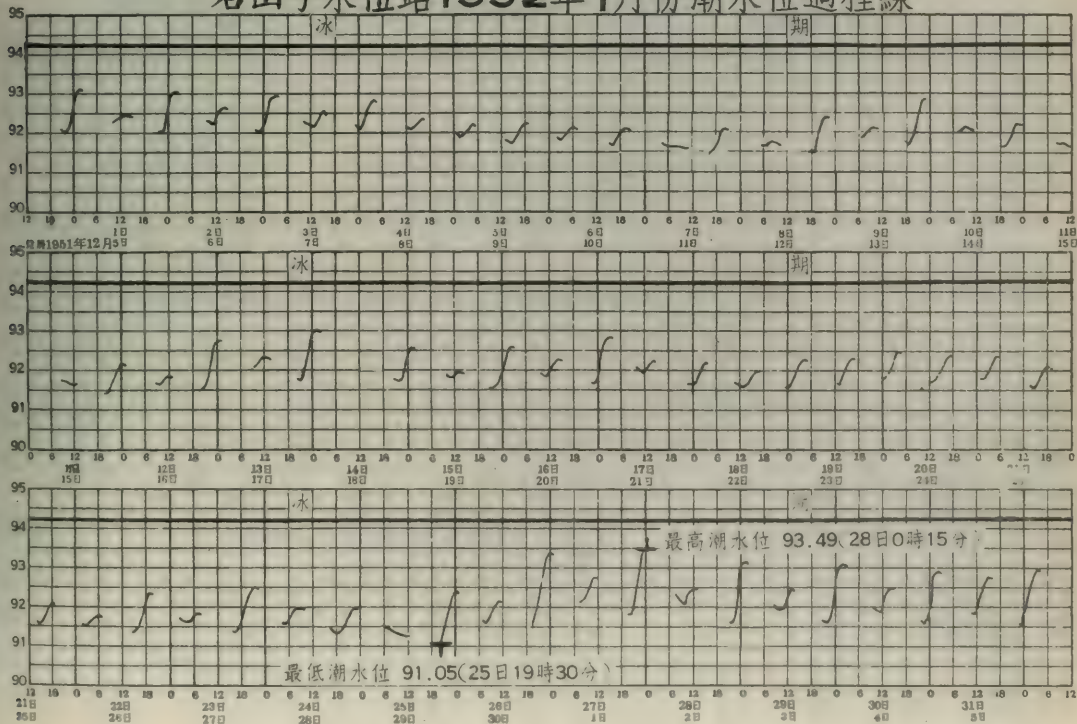 水位站1952年1月份潮水位過程線
冰 期
95
94
93
92
91
90
12 18 0 6 12 18 0 6 12 18 0 6 12 18 0 6 12 18 0 6 12 18 0 6 12 18 0 6 12 18 0 6 12 18 0 6 12 18 0 6 12 18 0 6 12
1日 2日 3日 4日 5日 6日 7日 8日 9日 10日 11日
1951年12月5日 6日 7日 8日 9日 10日 11日 12日 13日 14日 15日
95
冰 期
94
93
92
91
90
0 6 12 18 0 6 12 18 0 6 12 18 0 6 12 18 0 6 12 18 0 6 12 18 0 6 12 18 0 6 12 18 0 6 12 18 0 6 12 18 0 6 12 18 0
12日 13日 14日 15日 16日 17日 18日 19日 20日
15日 16日 17日 18日 19日 20日 21日 22日 23日 24日
95
冰
94
最高潮水位 93.49(28日0時15分)
93
92
91
最低潮水位 91.05(25日19時30分)
90
12 18 0 6 12 18 0 6 12 18 0 6 12 18 0 6 12 18 0 6 12 18 0 6 12 18 0 6 12 18 0 6 12 18 0 6 12 18 0 6 12 18 0 6 12
21日 22日 23日 24日 25日 26日 27日 28日 29日 30日 31日
25日 26日 27日 28日 29日 30日 1日 2日 3日 4日 5日